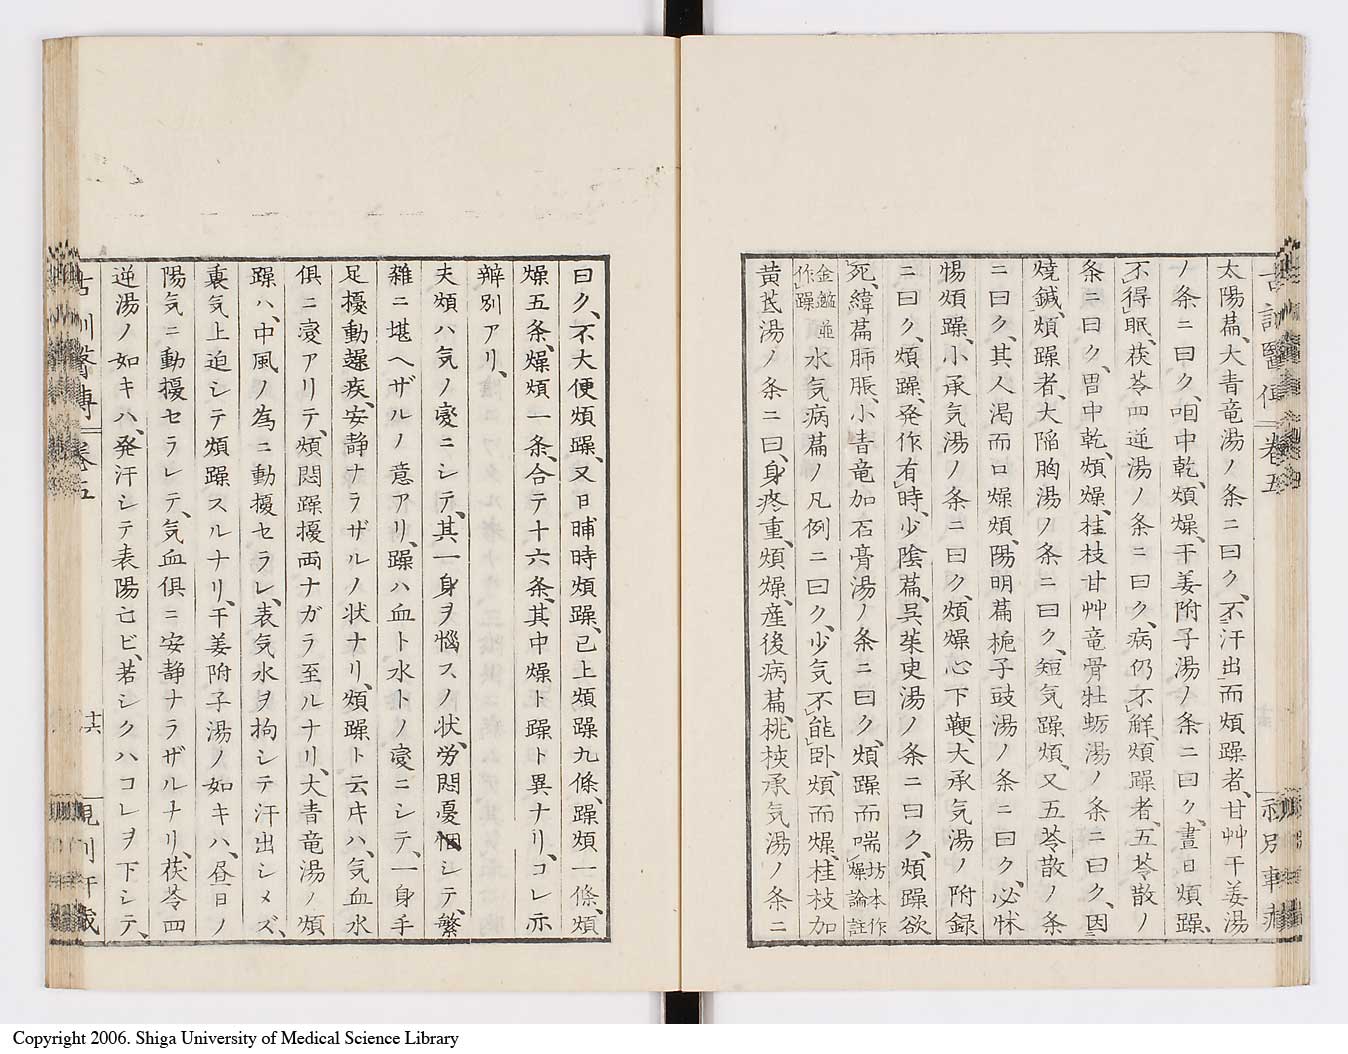 太陽篇、大青竜湯ノ条ニ曰ク、不汗出而煩躁者、甘艸干姜湯
ノ条ニ曰ク、咽中乾、煩燥、干姜附子湯ノ条ニ曰ク、晝日煩躁、
不得眠、茯苓四逆湯ノ条ニ曰ク、病仍不解、煩躁者、五苓散ノ
条ニ曰ク、胃中乾、煩燥、桂枝甘艸竜骨牡蛎湯ノ条ニ曰ク、因
焼鍼、煩躁者、大陥胸湯ノ条ニ曰ク、短気躁煩、又五苓散ノ条
ニ曰ク、其人渇而口燥煩、陽明篇梔子豉湯ノ条ニ曰ク、必怵
惕煩躁、小承気湯ノ条ニ曰ク、煩燥心下鞕、大承気湯ノ附録
ニ曰ク、煩躁、発作有時、少陰篇、呉茱萸湯ノ条ニ曰ク、煩躁欲
死、緯篇肺脹、小青竜加石膏湯ノ条ニ曰ク、煩躁而喘、坊本作燥論註
金鑑並作躁水気病篇ノ凡例ニ曰ク、少気不能臥、煩而燥、桂枝加
黄芪湯ノ条ニ曰、身疼重、煩燥、産後病篇、桃核承気湯ノ条ニ
曰ク、不大便煩躁、又日晡時煩躁、已上煩躁九條、躁煩一條、煩
燥五条、燥煩一条、合テ十六条、其中燥ト躁ト異ナリ、コレ亦
辨別アリ、
夫煩ハ気ノ変ニシテ、其一身ヲ惱スノ状、労悶憂悃シテ、繁
雑ニ堪ヘザルノ意アリ、躁ハ血ト水トノ変ニシテ、一身手
足擾動趮疾、安静ナラザルノ状ナリ、煩躁ト云ㇵ、気血水
俱ニ変アリテ、煩悶躁擾両ナガラ至ルナリ、大青竜湯ノ煩
躁ハ、中風ノ為ニ動擾セラレ、表気水ヲ拘シテ汗出シメズ、
裏気上迫シテ煩躁スルナリ、干姜附子湯ノ如キハ、昼日ノ
陽気ニ動擾セラレテ、気血俱ニ安静ナラザルナリ、茯苓四
逆湯ノ如キハ、発汗シテ表陽亡ビ、若シクハコレヲ下シテ、
古訓醫傳 巻五 十六
Copyright 2006. Shiga University of Medical Science Library